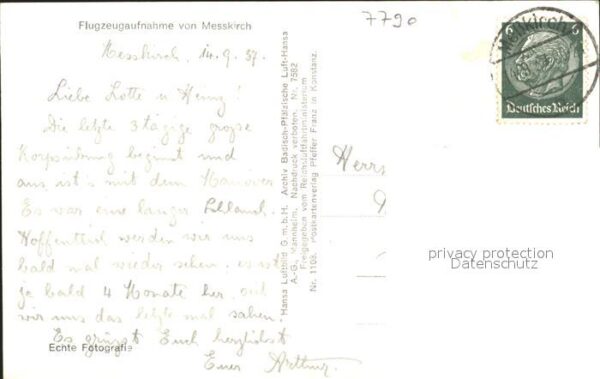 Flugzeugaufnahme von Messkirch
7790
Messkirch, 14.9.37.
Liebe Lotte u Heinz!
Die letzte 3tägige große
beginnt und
aus ist's mit dem Manöver
Es war eine langer
Hoffentlich werden wir uns
bald mal wieder sehen, es ist
ja bald 4 Monate her, seit
wir uns das letzte mal sahen.
Es grüsst Euch herzlichst
Euer Arthur.
Echte Fotografie
Hansa Luftbild G.m.b.H. Archiv Badisch-Pfälzische Luft-Hansa
A.-G., Mannheim. Nachdruck verboten. Nr. 7582
Freigegeben vom Reichsluftfahrtministerium
Nr. 1108. Postkartenverlag Pfeffer Franz in Konstanz.
Meßkirch
6 6
Deutsches Reich
Herrn
privacy protection
Datenschutz